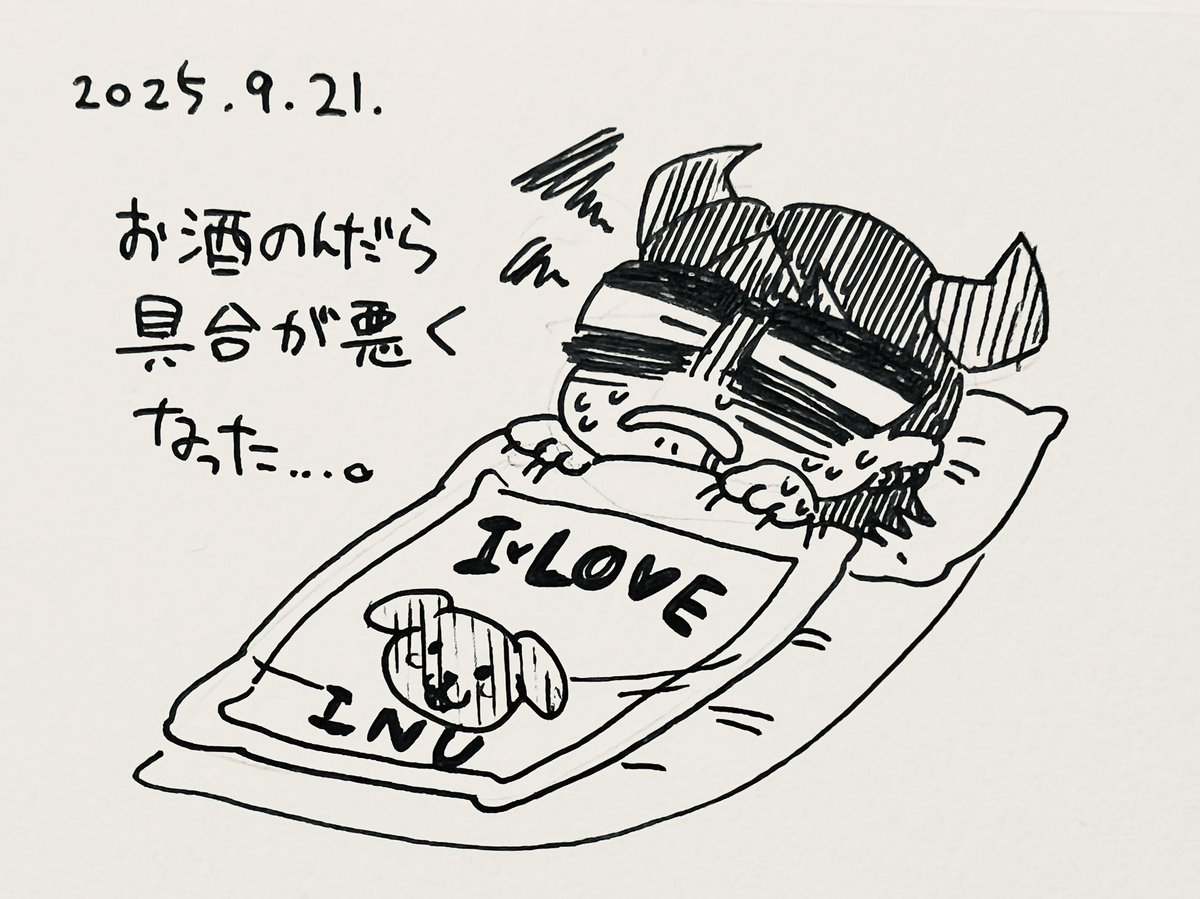 2025.9.21.
お酒のんだら
具合が悪く
なった…。
I LOVE
INU